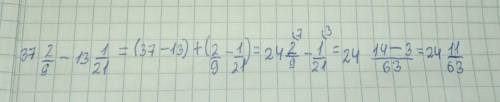 37 2/9 - 13 1/21 = (37-13)+(2/9 - 1/21) = 24 2/9⁷ - 1/21³ = 24 14-3/63 = 24 11/63